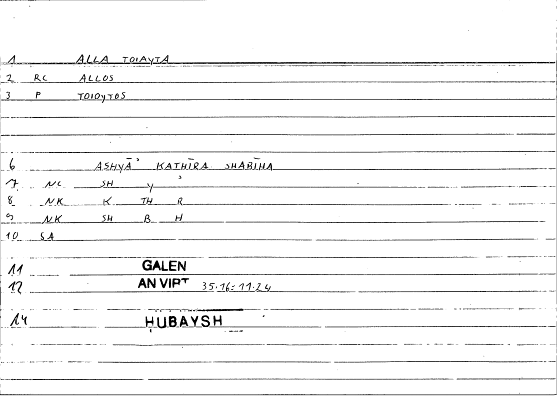 1 ALLA TOIAYTA
2 RC ALLOS
3 P TOIOYTOS
6 ASHYĀ' KATHĪRA SHABĪHA
7 NC SH Y '
8 NK K TH R
9 NK SH B H
10 SA
11 GALEN
12 AN VIRT 35.16:11.24
14 HUBAYSH